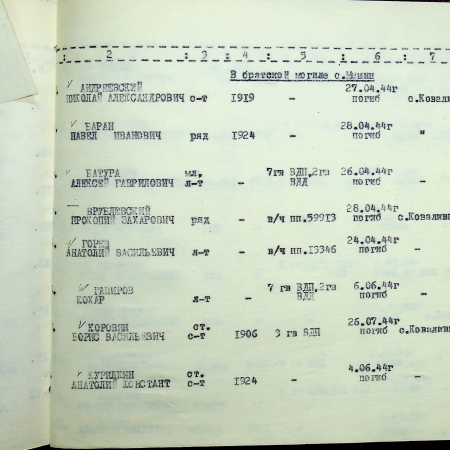 : 2 : 3 : 4 : 5 : 6 : 7
В братской могиле с.Минни
АНДРЕЕВСКИЙ 27.04.44г
НИКОЛАЙ АЛЕКСАНДРОВИЧ с-т 1919 - погиб с.Ковали
БАРАН 28.04.44г
ПАВЕЛ ИВАНОВИЧ ряд 1924 - погиб "
БАТУРА мл. 7гв ВДП,2гв 26.04.44г
АЛЕКСЕЙ ГАВРИЛОВИЧ л-т - ВДД погиб -
ВРУБЛЕВСКИЙ 28.04.44г
ПРОКОПИЙ ЗАХАРОВИЧ ряд - в/ч пп.59913 погиб с.Ковалив
ГОРЕЦ 24.04.44г
АНАТОЛИЙ ВАСИЛЬЕВИЧ л-т - в/ч пп.13346 погиб -
ГАПИРОВ 7 гв ВДП,2гв 6.06.44г
КОХАР л-т - ВДД погиб -
КОРОВИН ст. 26.07.44г
БОРИС ВАСИЛЬЕВИЧ с-т 1906 3 гв ВДП погиб с.Ковалив
КУРИЦКИН ст. 4.06.44г
АНАТОЛИЙ КОНСТАНТ с-т 1924 - погиб -